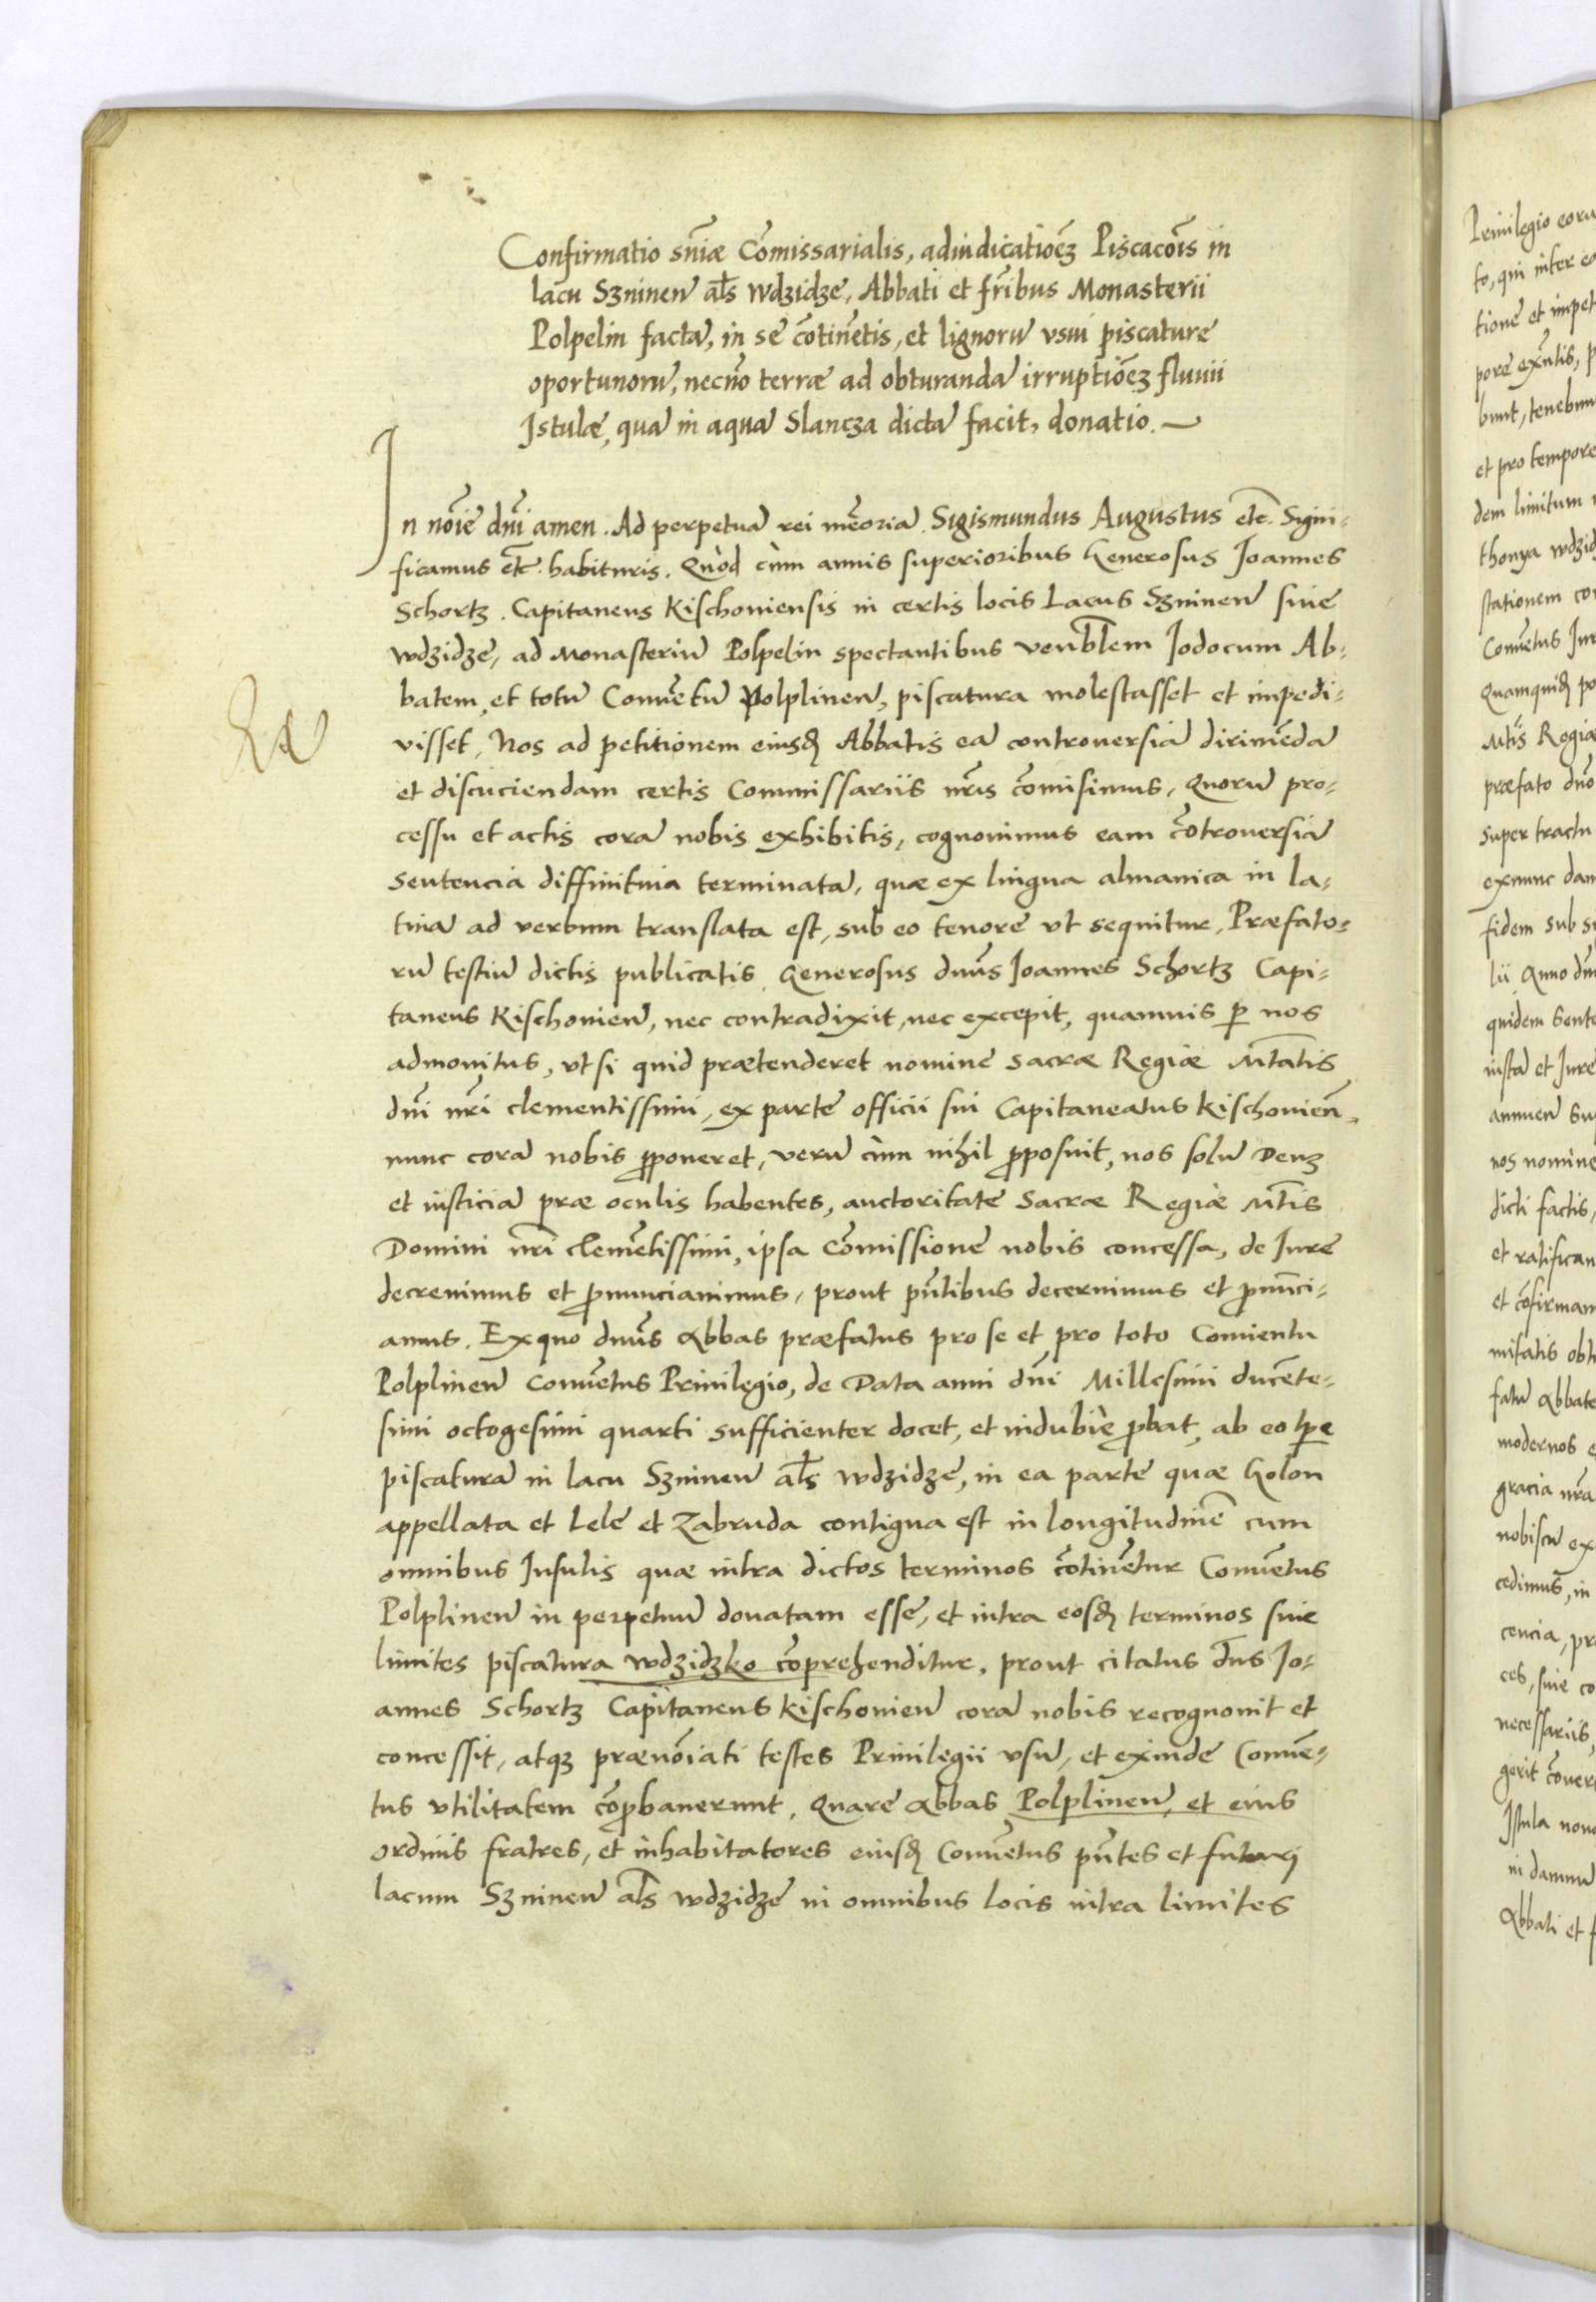 Confirmatio snīæ Cōmissarialis, adiudicatiōēȝ Piscacōīs in
lacu Szninen̄ al̄s Wdzidze, Abbati et fr̄ibus Monasterii
Polpelin factā, in se cōtinētis, et lignorū vsui piscature
oportunorū, necnō terræ ad obturandā irruptiōēȝ fluuii
Istulæ, quā in aquā Slancza dictā facit, donatio.
In nōīe dn̄i amen. Ad perpetuā rei mēoriā. Sigismundus Augustus etc̄. Signi-
ficamus etc̄. habituris. Quòd cùm annis superioribus Generosus Joannes
Schortz. Capitaneus Kischouiensis in certis locis Lacus Szninen̄ siue
Wdzidze, ad Monasteriū Polpelin spectantibus venbl̄em Jodocum Ab-
batem, et totū Conuētū Polplinen̄, piscatura molestasset et impedi-
visset, Nos ad petitionem eiusdꝫ Abbatis eā controuersiā dirimēdā
et discuciendam certis Commissariis nr̄is cōmisimus, Quorū pro-
cessu et actis corā nobis exhibitis, cognouimus eam cōtrouersiā
sentencia diffinitiua terminatā, quæ ex lingua almanica in la-
tinā ad verbum translata est, sub eo tenore vt sequitur, Præfato-
rū testiū dictis publicatis, Generosus dn̄us Joannes Schortz Capi-
taneus Kischouien̄, nec contradixit, nec excepit, quamuis ꝑ nos
admonitus, vt si quid prætenderet nomine Sacræ Regiæ Mtātis
dn̄i nr̄i clementissimi, ex parte officii sui Capitaneatus Kischouien̄,
nunc corā nobis ꝓponeret, verū cùm nihil ꝓposuit, nos solū Deuȝ
et iusticiā præ oculis habentes, auctoritate Sacræ Regiæ Mt̄is
Domini nr̄i clemētissimi, ipsa Cōmissione nobis concessa, de Jure
decreuimus et ꝓnunciauimus, prout pn̄tibus decernimus et ꝓnūci-
amus. Ex quo dn̄us Abbas præfatus pro se et pro toto Conuentu
Polplinen̄ Conuētus Priuilegio, de Data anni dn̄i Millesimi ducēte-
simi octogesimi quarti sufficienter docet, et indubiè ꝓbat, ab eo tꝑe
piscaturā in lacu Szninen̄ al̄s Wdzidze, in ea parte quæ Golon
appellata et Lele et Zabruda contigua est in longitudinē cum
omnibus Insulis quæ intra dictos terminos cōtinētur Conuētus
Polplinen̄ in perpetuū donatam esse, et intra eosdꝫ terminos siue
limites piscatura Wdzidzko cōprehenditur, prout citatus dn̄s Jo-
annes Schortz Capitaneus Kischouien̄ corā nobis recognouit et
concessit, atqꝫ prænōīati testes Priuilegii vsū, et exinde Conuē-
tus vtilitatem cōꝓbauerunt. Quare Abbas Polplinen̄, et eius
ordinis fratres, et inhabitatores eiusdꝫ Conuētus pn̄tes et futuri
lacum Szninen̄ al̄s Wdzidze in omnibus locis intra limites
Priuilegio eorū
to, qui inter eo
tione et impet
pore exn̄tis, p
bunt, tenebun
et pro tempore
dem limitum
thonya Wdzid
stationem co
Conuētus Jur
Quamquidꝫ po
Mt̄is Regiæ
præfato dn̄o
super tractu
exnunc dam
fidem sub si
lii Anno dn̄i
quidem Sente
iusta et Jure
annuen̄ su
nos nomine
dicti factis,
et ratifican
et cōfirmam
mitatis obt
fatū Abbate
modernos e
gracia nr̄a
nobiscū ex
cedimus, in
cencia, pr
ces, siue co
necessariis
gerit cōuer
Istula nou
in damnū
Abbati et f